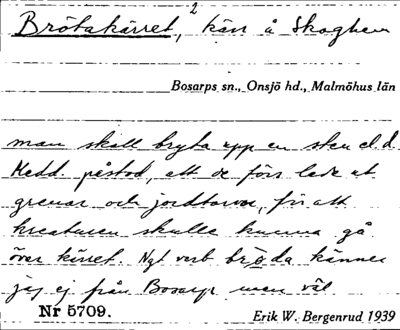 2
Brötakärret, kärr å Skoghem
Bosarps sn., Onsjö hd., Malmöhus län
man skall bryta upp en sten el.d.
Medd. påstod, att de förr lade ut
grenar och jordtorvor, för att
kreaturen skulle kunna gå
över kärret. Ngt verb bröda känner
jag ej från Bosarp men väl
Nr 5709.
Erik W. Bergenrud 1939